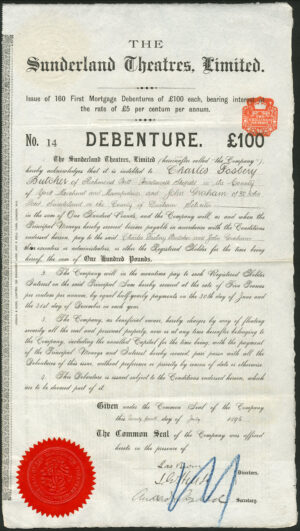 THE
Sunderland Theatres, Limited.
Issue of 160 First Mortgage Debentures of £100 each, bearing interest
the rate of £5 per centum per annum.
No. 14 DEBENTURE. £100
The Sunderland Theatres, Limited (hereinafter called "the Company")
hereby acknowledges that it is indebted to Charles Fosbery
Butcher of Richmond in the County
of and John Graham of
Sunderland in the County of Durham Solicitor
in the sum of One Hundred Pounds, and the Company will, as and when the
Principal Moneys hereby secured become payable in accordance with the Conditions
endorsed hereon, pay to the said Charles Fosbery Butcher and John Graham
executors or administrators, or other the Registered Holders for the time being
hereof, the sum of One Hundred Pounds.
2. The Company will in the meantime pay to such Registered Holders
Interest on the said Principal Sum hereby secured at the rate of Five Pounds
per centum per annum, by equal half-yearly payments on the 30th day of June and
the 31st day of December in each year.
3. The Company, as beneficial owner, hereby charges by way of floating
security all the real and personal property, now or at any time hereafter belonging to the
Company, including the uncalled Capital for the time being, with the payment
of the Principal Moneys and Interest hereby secured, pari passu with all the
Debentures of this issue, without preference or priority by reason of date or otherwise.
4. This Debenture is issued subject to the Conditions endorsed hereon, which
are to be deemed part of it.
Given under the Common Seal of the Company
this day of July
The Common Seal of the Company was affixed
hereto in the presence of
Directors.
Secretary.